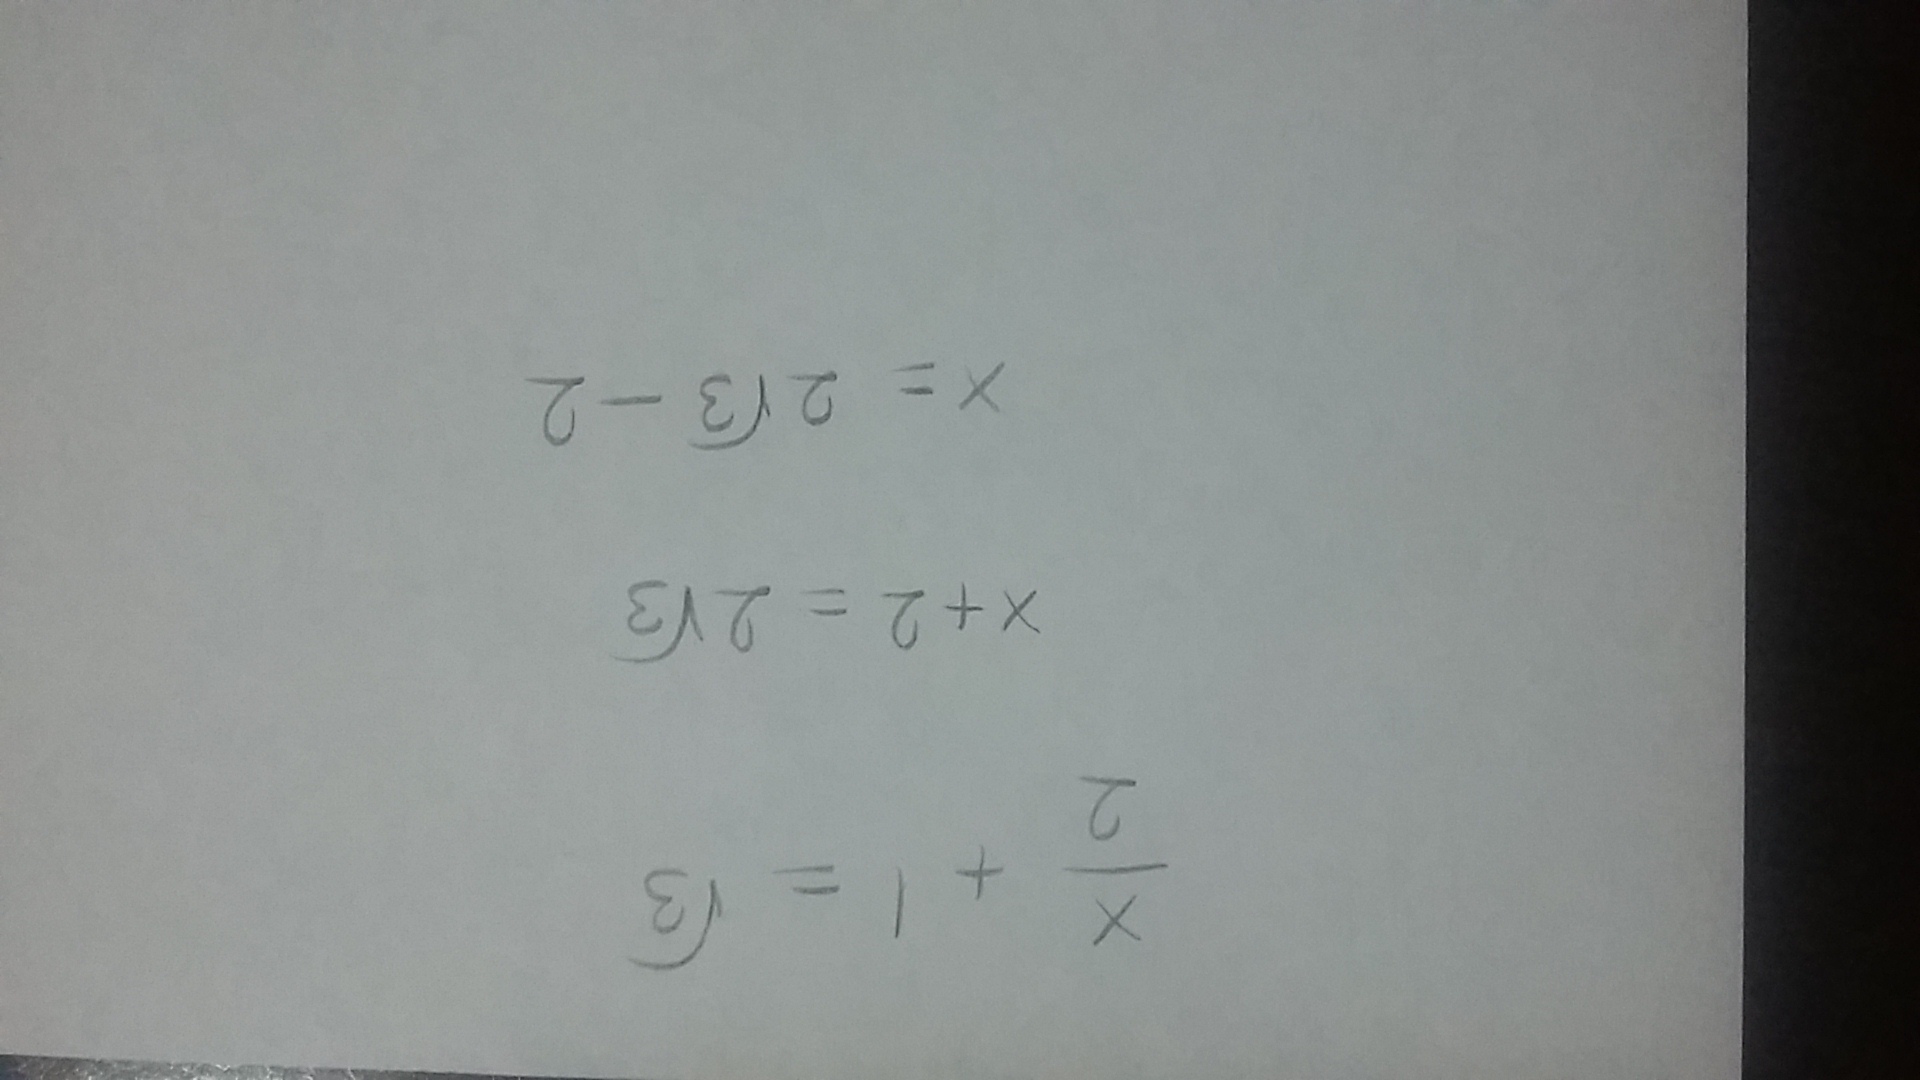 x/2 + 1 = √3
x + 2 = 2√3
x = 2√3 − 2